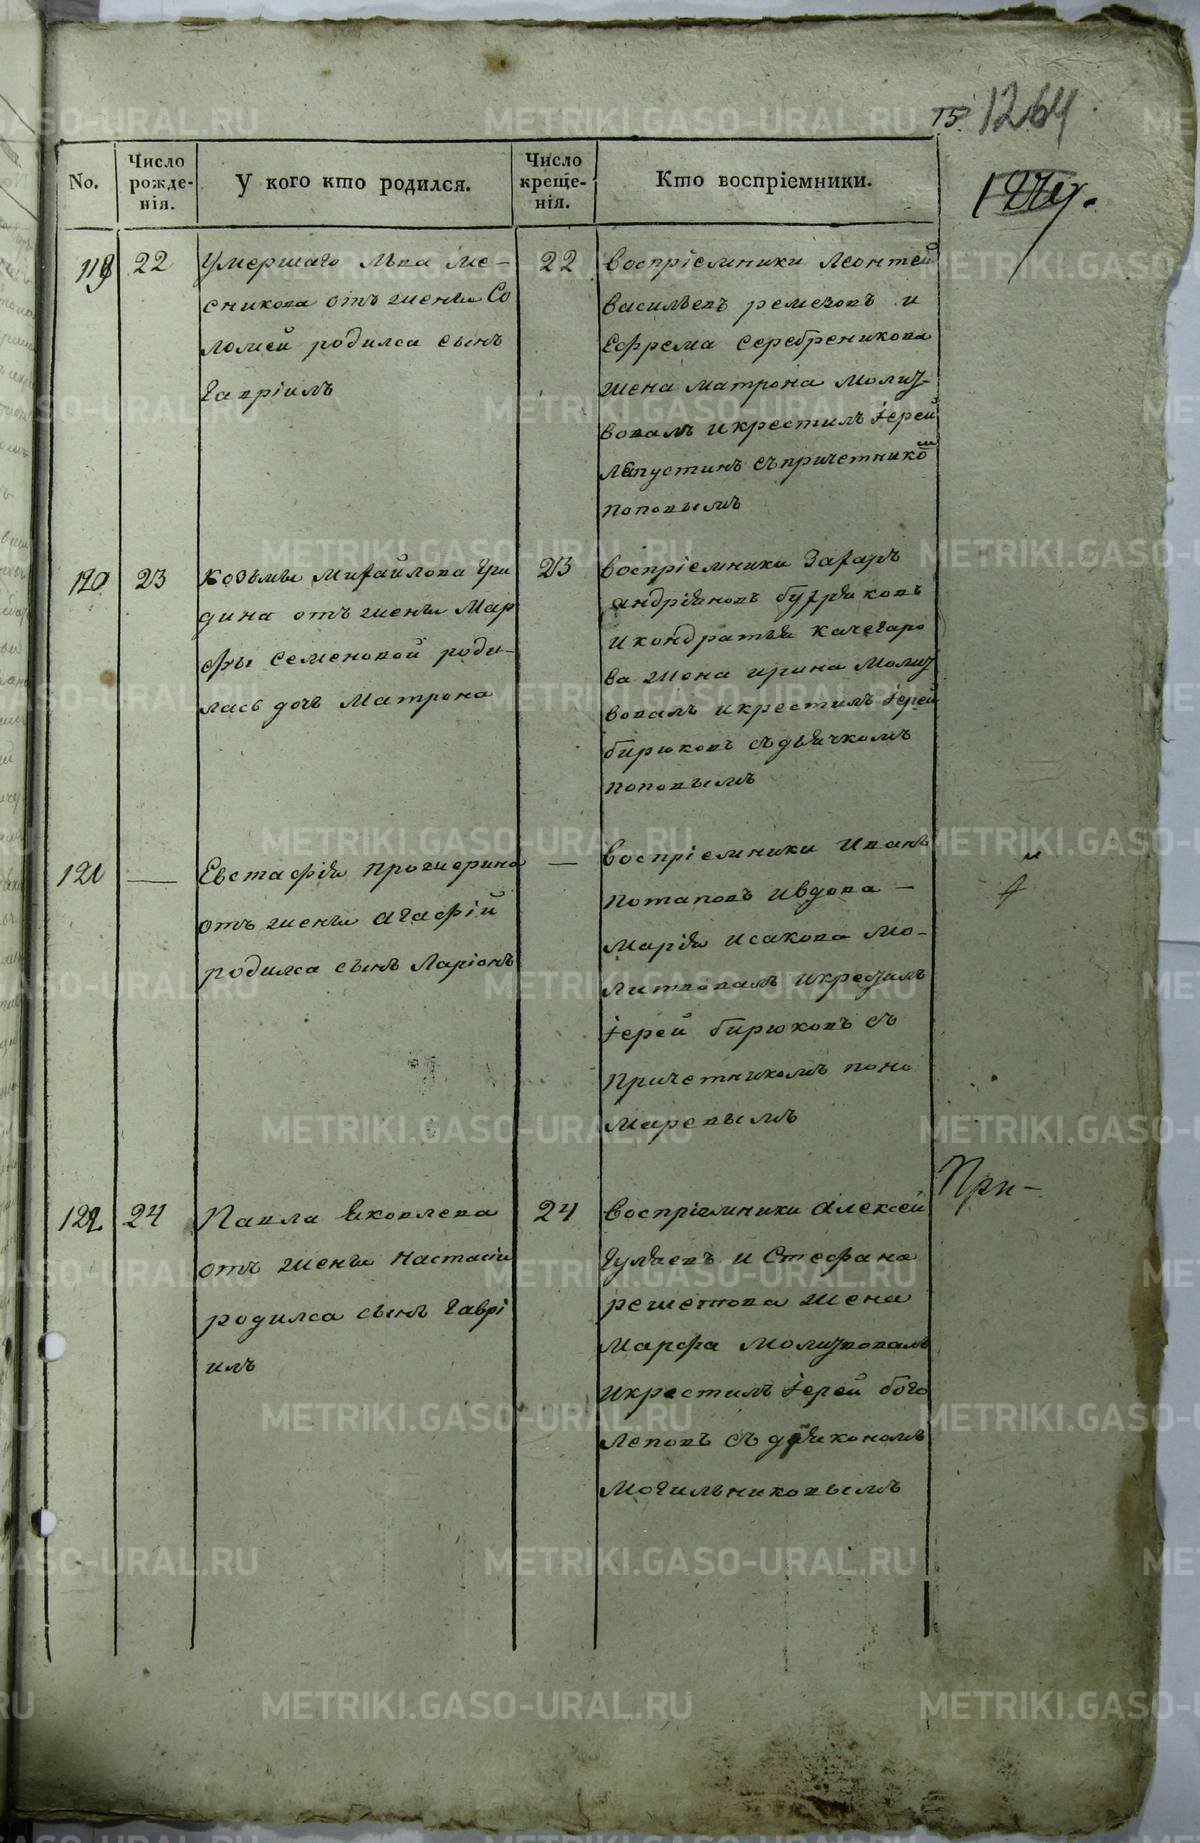 15. 1264
No.
Число рожде- нія.
У кого кто родился.
Число креще- нія.
Кто воспріемники.
119 22 Умершаго Льва Ме-
сникова отъ жены Со
ломеи родился сынъ
Гавріилъ
22 воспріемники Леонтей
васильевъ ремезовъ и
Ефрема серебреникова
жена матрона молит-
вовалъ и крестилъ іерей
Лапустинъ съ причетнико м
поповымъ
120 23 Козьмы Михайлова Гри
дина отъ жены Мар
фы семеновой роди-
лась дочь Матрона
23 воспріемники Захаръ
андріяновъ
и кондратья качегаро
ва жена ирина молит
вовалъ и крестилъ іерей
бирюковъ съ дьячкомъ
поповымъ
121 — Евстафія
отъ жены Агафіи
родился сынъ Ларіонъ
— воспріемники Иванъ
потаповъ и вдова —
Марія исакова мо-
литвовалъ и крестилъ
іерей бирюковъ съ
причетникомъ поно
маревымъ
122 24 Павла Яковлева
отъ жены настасіи
родился сынъ гаврі
илъ
24 воспріемники алексей
гуляевъ и Стефана
решетова жена
марфа молитвовалъ
и крестилъ іерей бого
леповъ съ дьякономъ
могильниковымъ
При-
METRIKI.GASO-URAL.RU